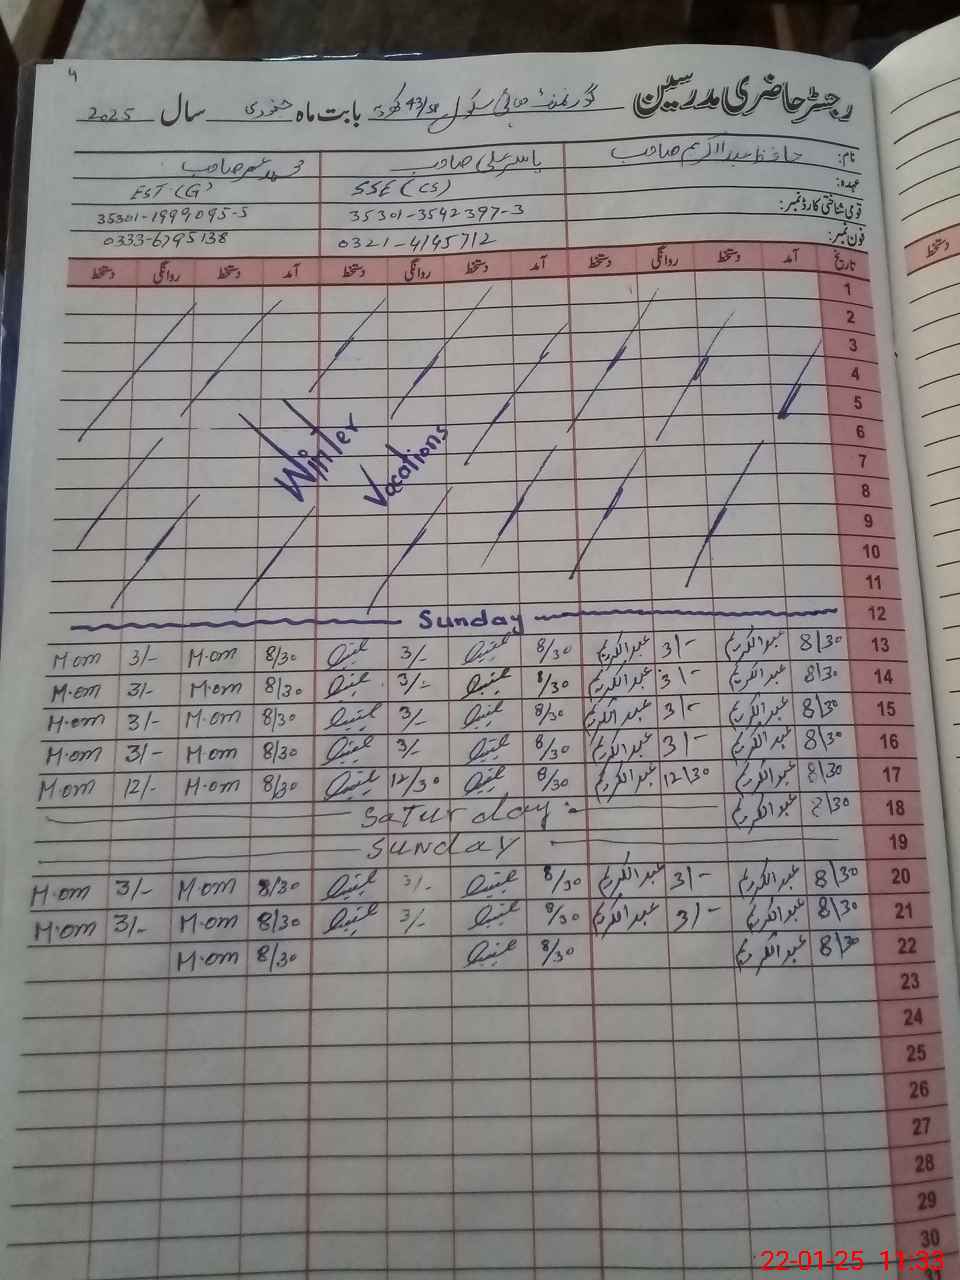 ۹
رجسٹر حاضری مدرسین گورنمنٹ ہائی سکول 43/SP بابت ماہ جنوری سال 2025
نام: حافظ عبدالکریم صاحب یاسر علی صاحب محمد عمر صاحب
عہدہ: SSE (CS) EST (G)
قومی شناختی کارڈ نمبر: 35301-3542397-3 35301-1999095-5
فون نمبر: 0321-4145712 0333-6795138
تاریخ آمد دستخط روانگی دستخط آمد دستخط روانگی دستخط آمد دستخط روانگی دستخط
1
2
3
4
5
6
Winter
7
Vacations
8
9
10
11
12 Sunday
13 8/30 عبدالکریم 3/- عبدالکریم 8/30 3/- 8/30 M.om 3/- M.om
14 8/30 عبدالکریم 3/- عبدالکریم 8/30 3/- 8/30 M.om 3/- M.om
15 8/30 عبدالکریم 3/- عبدالکریم 8/30 3/- 8/30 M.om 3/- M.om
16 8/30 عبدالکریم 3/- عبدالکریم 8/30 3/- 8/30 M.om 3/- M.om
17 8/30 عبدالکریم 12/30 عبدالکریم 8/30 12/30 8/30 M.om 12/- M.om
18 8/30 عبدالکریم Saturday:
19 Sunday
20 8/30 عبدالکریم 3/- عبدالکریم 8/30 3/- 8/30 M.om 3/- M.om
21 8/30 عبدالکریم 3/- عبدالکریم 8/30 3/- 8/30 M.om 3/- M.om
22 8/30 عبدالکریم 8/30 8/30 M.om
23
24
25
26
27
28
29
30
22-01-25 11:33